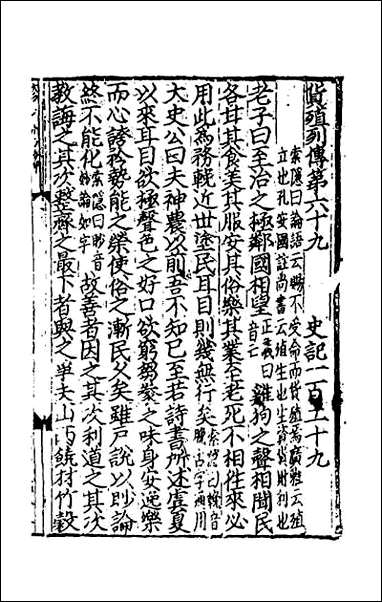 貨殖列傳第六十九　史記一百二十九
索隱曰論語云賜不受命而貨殖焉廣雅云殖
立也孔安國註尚書云殖生也生資貨財利也
老子曰至治之極鄰國相望正義曰音亡雞狗之聲相聞民
各甘其食美其服安其俗樂其業至老死不相往來必
用此為務輓近世塗民耳目則幾無行矣索隱曰輓音晚古字通用
太史公曰夫神農以前吾不知已至若詩書所述虞夏
以來耳目欲極聲色之好口欲窮芻豢之味身安逸樂
而心誇矜勢能之榮使俗之漸民久矣雖戶說以眇論
終不能化索隱曰眇音妙論如字故善者因之其次利道之其次
教誨之其次整齊之最下者與之爭夫山西饒材竹穀